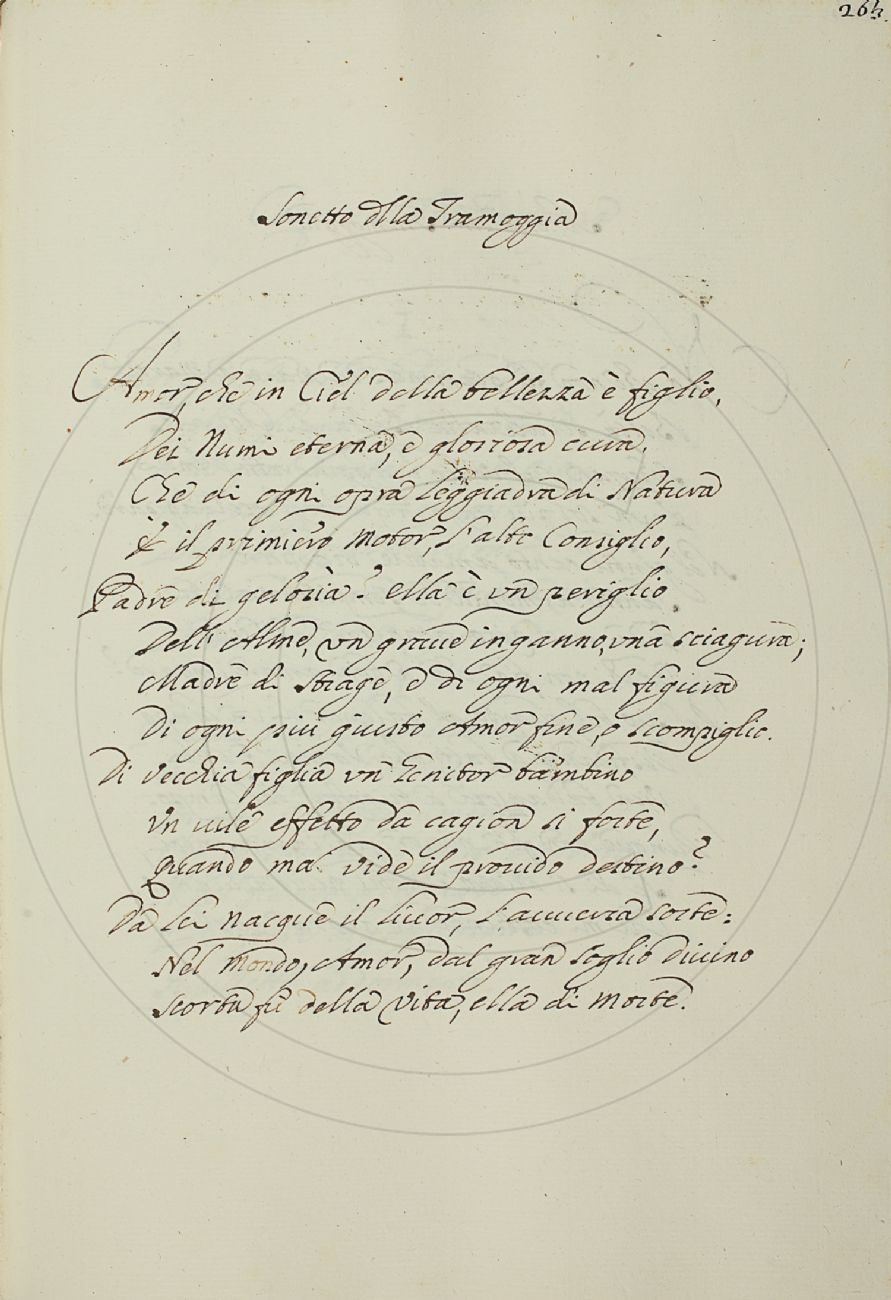 264.
Sonetto dlla Tramoggia
Amor, che in Ciel della bellezza è figlio,
Dei Numi eterna, e gloriosa cura.
Che di ogni opra leggiadra di Natura
È il primiero Motor, l'alto Consiglio,
Padre di gelosia? ella è un periglio
Dell' Alme, un grave inganno, una sciagura;
Madre di strage, e di ogni mal figura
Di ogni più giusto Amor fine, o scompiglio.
Di vecchia figlia un Genitor bambino
Un vile effetto da cagion si forte,
Quando mai vide il provido destino?
Da lei nacque il livor, l'avversa sorte:
Nel Mondo, Amor, dal gran soglio divino
Scorta fù della vita, ella di Morte.